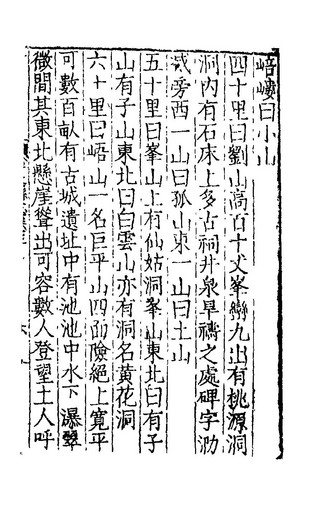 峿嶁曰小山
四十里曰劉山高百十丈峯巒九出有桃源洞
洞内有石床上多古祠井泉旱禱之處碑字泐
蔑旁西一山曰孤山東一山曰土山
五十里曰峯山上有仙姑洞峯山東北曰有子
山有子山東北曰白雲山亦有洞名黄花洞
六十里曰峿山一名巨平山四面險絕上寬平
可數百畝有古城遺址中有池池中水下瀑翠
微間其東北懸崖聳出可容數人登望土人呼